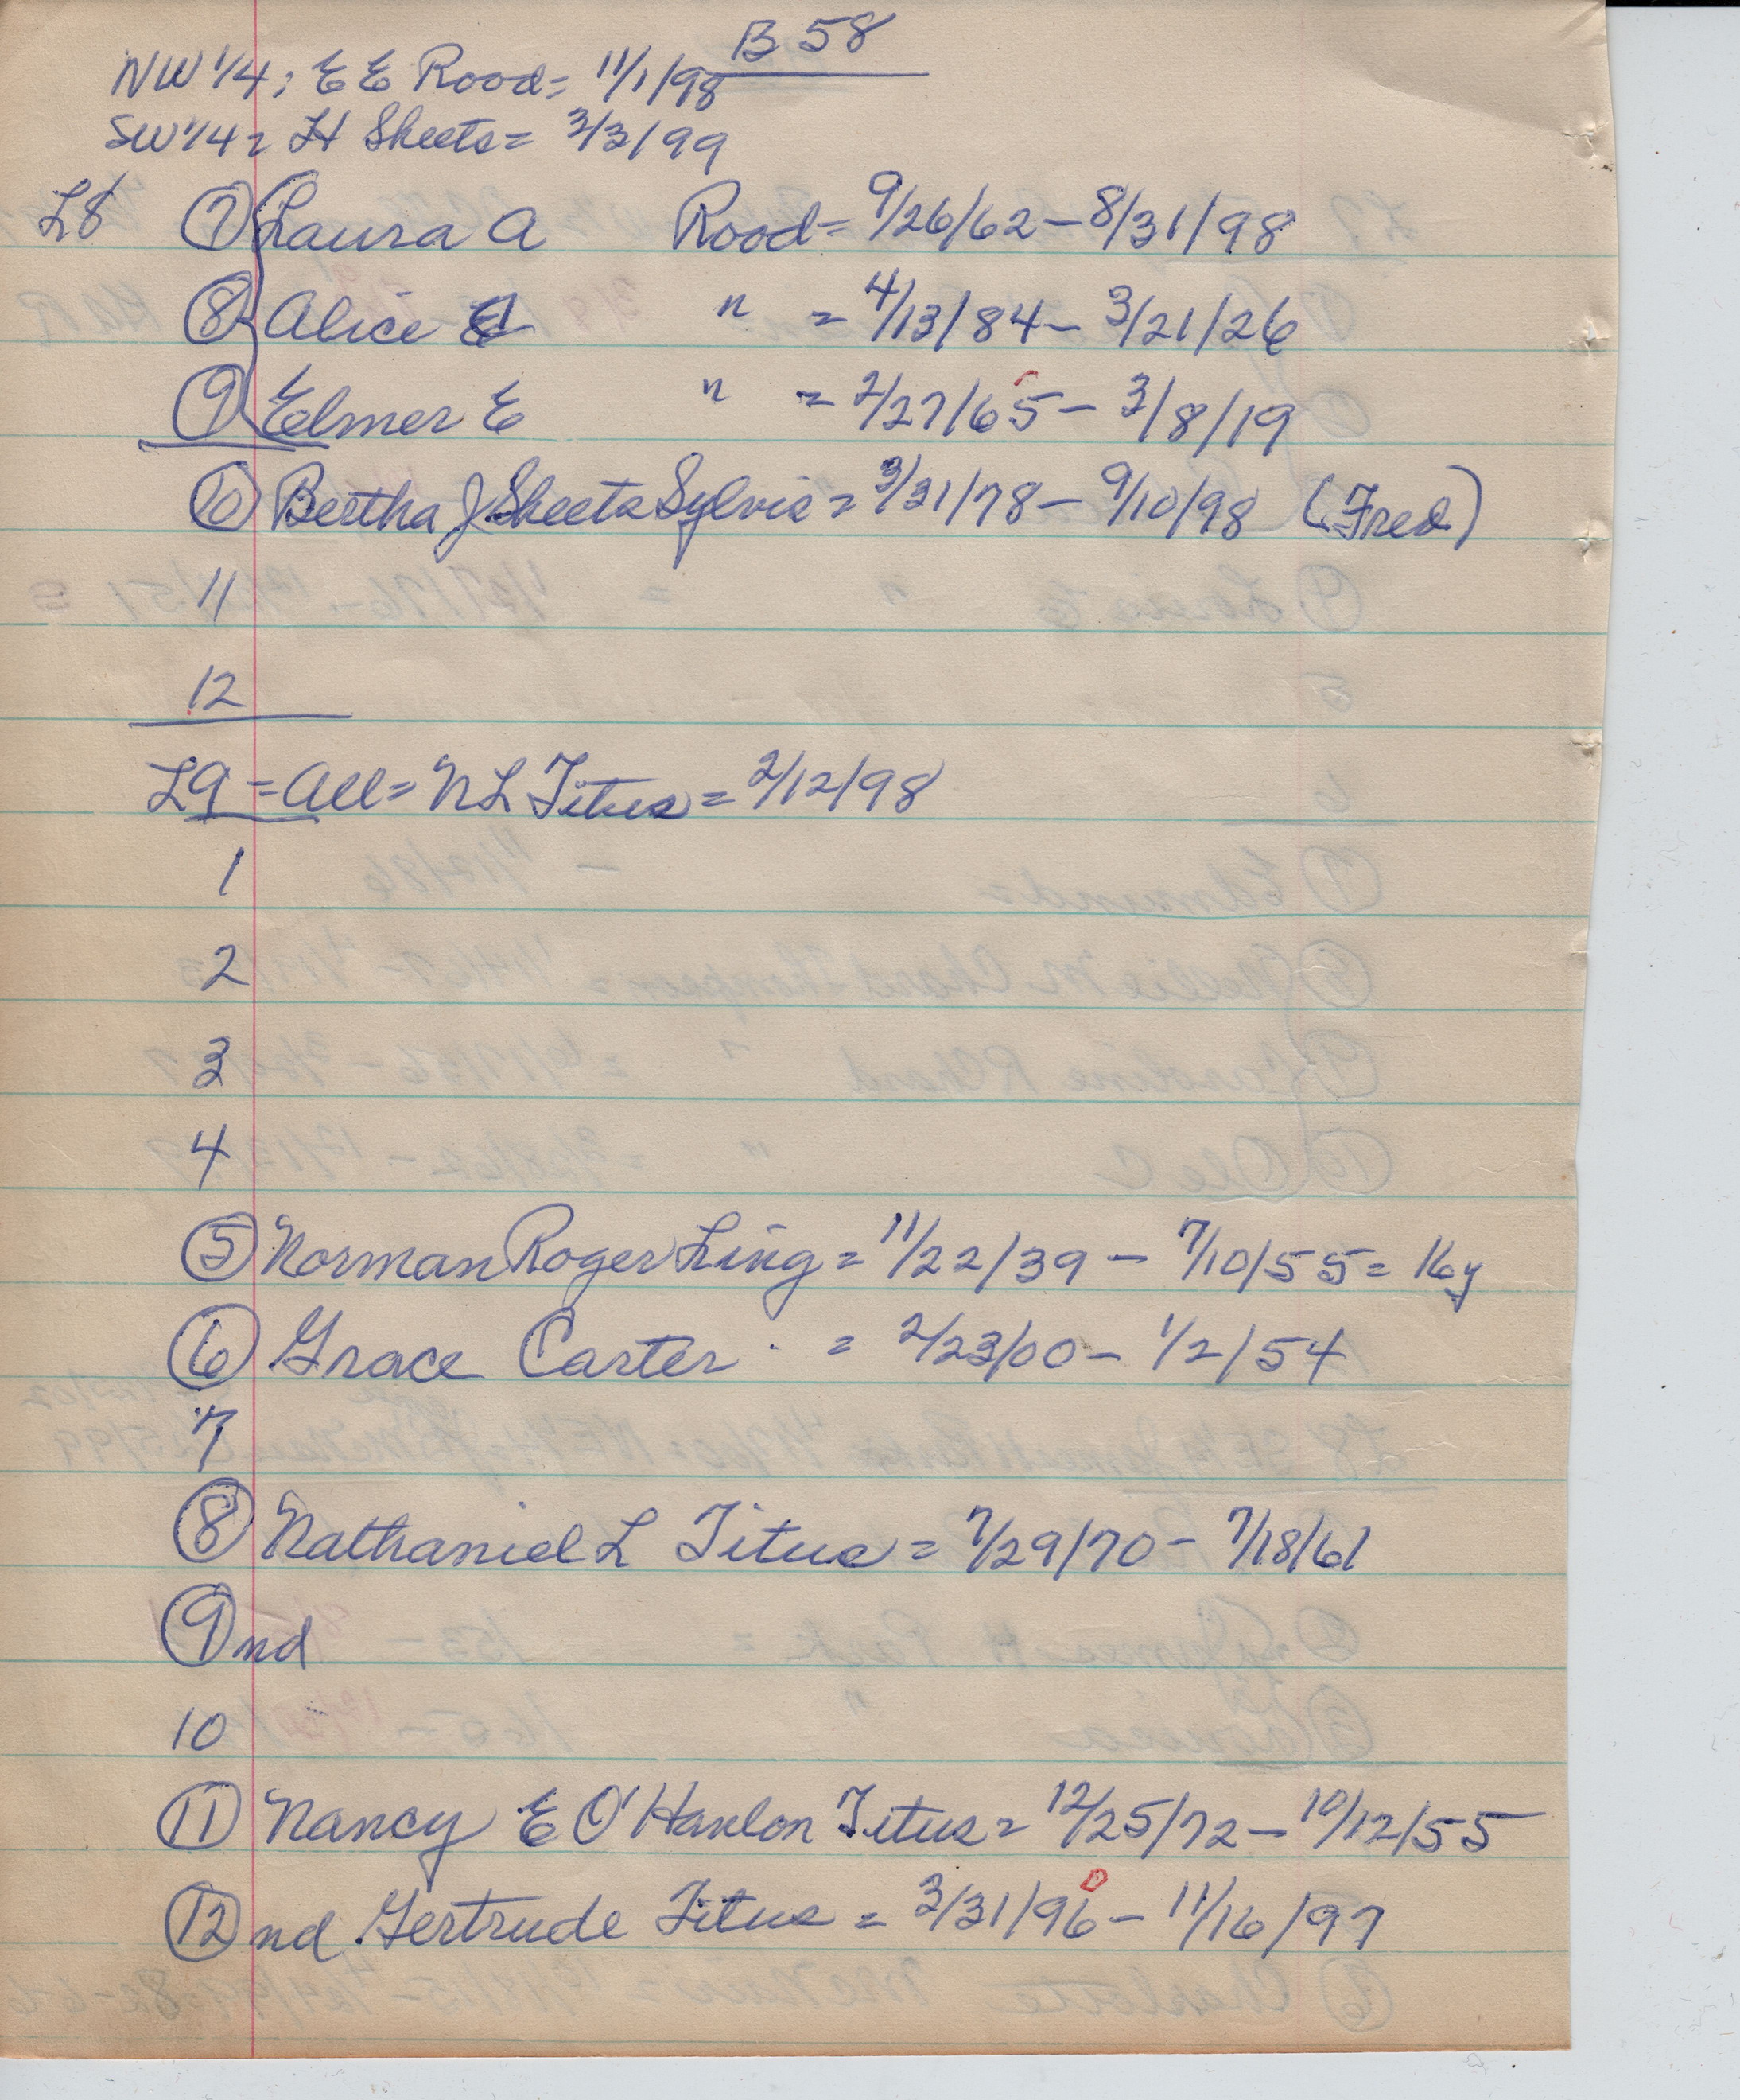 B 58
NW 1/4 = E E Rood = 11/1/98
SW 1/4 = H Sheets = 3/3/99
L8 7 Laura A Rood = 9/26/62 - 8/31/98
8 Alice " = 4/13/84 - 3/21/26
9 Elmer E " = 2/27/65 - 3/8/19
10 Bertha J Sheets Sylvis = 3/31/78 - 9/10/98 (Fred)
11
12
L9 = All = N L Titus = 2/12/98
1
2
3
4
5 Norman Roger Ling = 11/22/39 - 7/10/55 = 16y
6 Grace Carter = 2/23/00 - 1/2/54
7
8 Nathaniel L Titus = 7/29/70 - 7/18/61
9 nd
10
11 Nancy E O'Hanlon Titus = 12/25/72 - 10/12/55
12 nd Gertrude Titus = 3/31/96 - 11/16/97